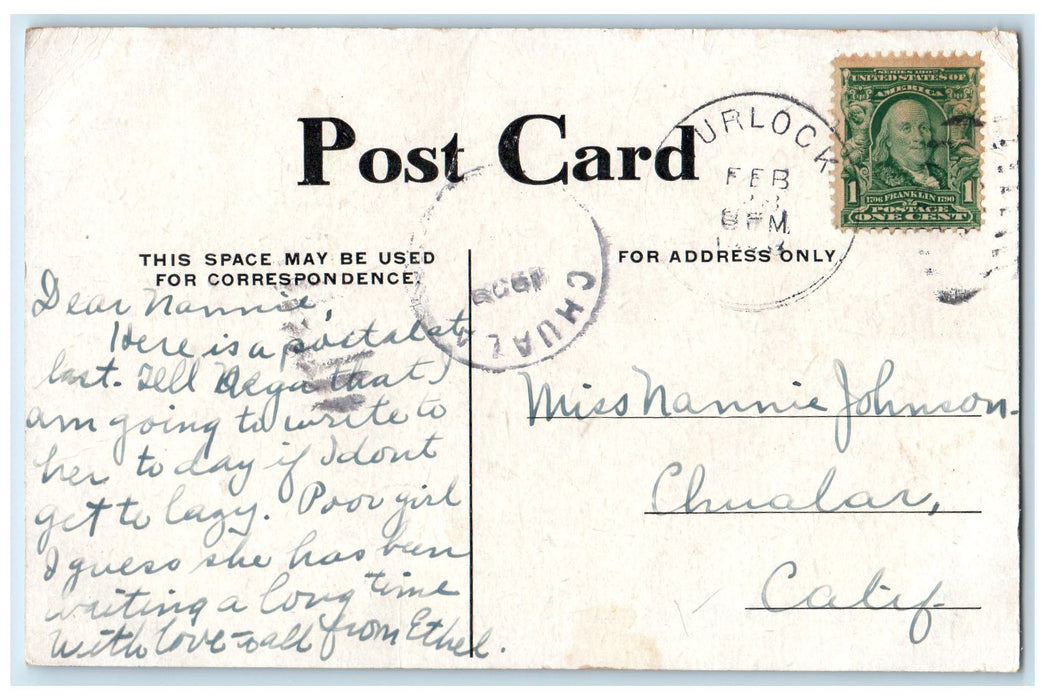 Post Card
THIS SPACE MAY BE USED
FOR CORRESPONDENCE.
FOR ADDRESS ONLY
URLOCK
FEB
8 PM
SERIES 1902
UNITED STATES OF
AMERICA
1 1706 FRANKLIN 1790 1
POSTAGE
ONE CENT
CHUALA
1908
Dear Nannie,
Here is a postal at
last. Tell that I
am going to write to
her to day if I dont
get to lazy. Poor girl
I guess she has been
waiting a long time
With love to all from Ethel.
Miss Nannie Johnson.
Chualar,
Calif.